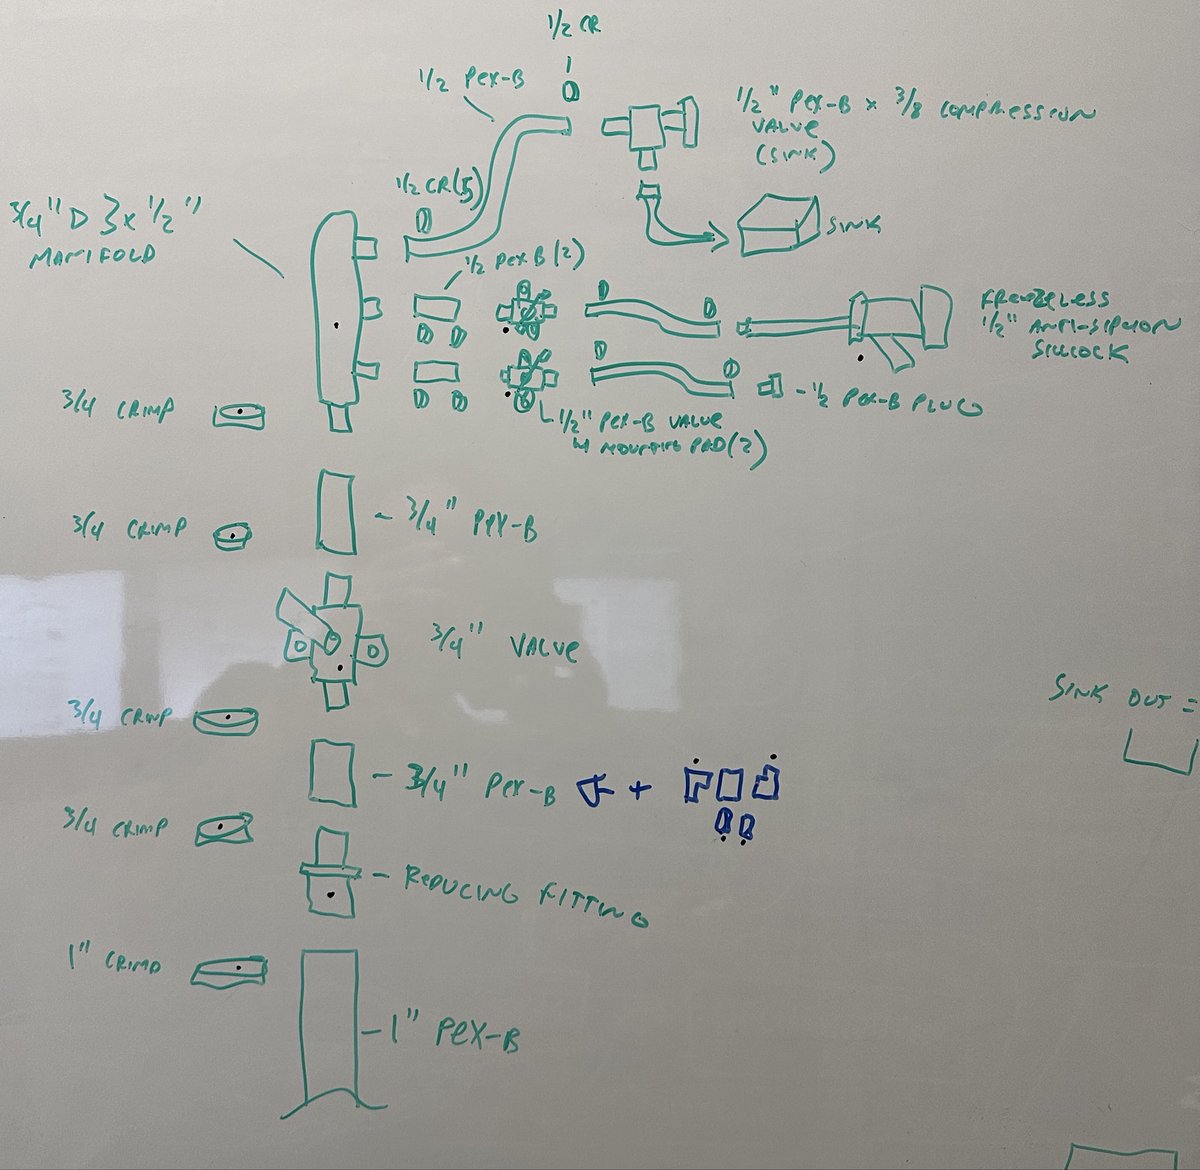 1/2 CR
1/2 PEX-B
1/2" PEX-B x 3/8 COMPRESSION
VALVE
(SINK)
1/2 CR(5)
3/4" D 3x 1/2"
MANIFOLD
SINK
1/2 PEX B (2)
FREEZELESS
1/2" ANTI-SIPHON
SILLCOCK
3/4 CRIMP
1/2 PEX-B PLUG
1/2" PEX-B VALVE
W/ MOUNTING PAD (2)
3/4 CRIMP
3/4" PEX-B
3/4" VALVE
SINK OUT =
3/4 CRIMP
3/4" PEX-B +
3/4 CRIMP
REDUCING FITTING
1" CRIMP
1" PEX-B